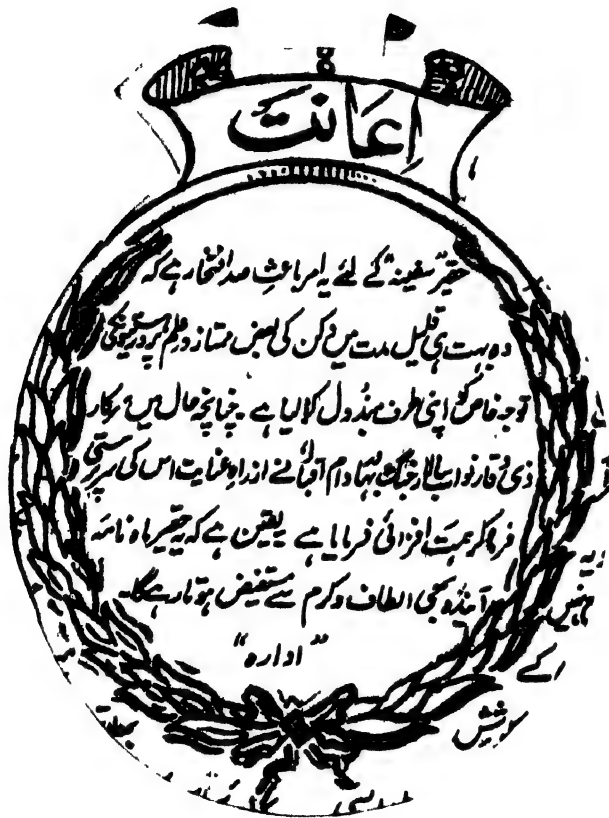 اِعَانت
حقیر "سفینہ" کے لئے یہ امر باعثِ صد افتخار ہے کہ
وہ بہت ہی قلیل مدت میں دکن کی بعض ممتاز و علم پرور
توجہ خاص کو اپنی طرف مبذول کرا لیا ہے۔ چنانچہ حال میں سرکار
ذی وقار نواب سالار جنگ بہادر دام اقبالہٗ نے از راہِ عنایت اس کی سرپرستی
فرما کر ہمت افزائی فرمایا ہے یقین ہے کہ یہ حقیر ماہ نامہ
آیندہ بھی الطاف و کرم سے مستفیض ہوتا رہے گا۔
"ادارہ"